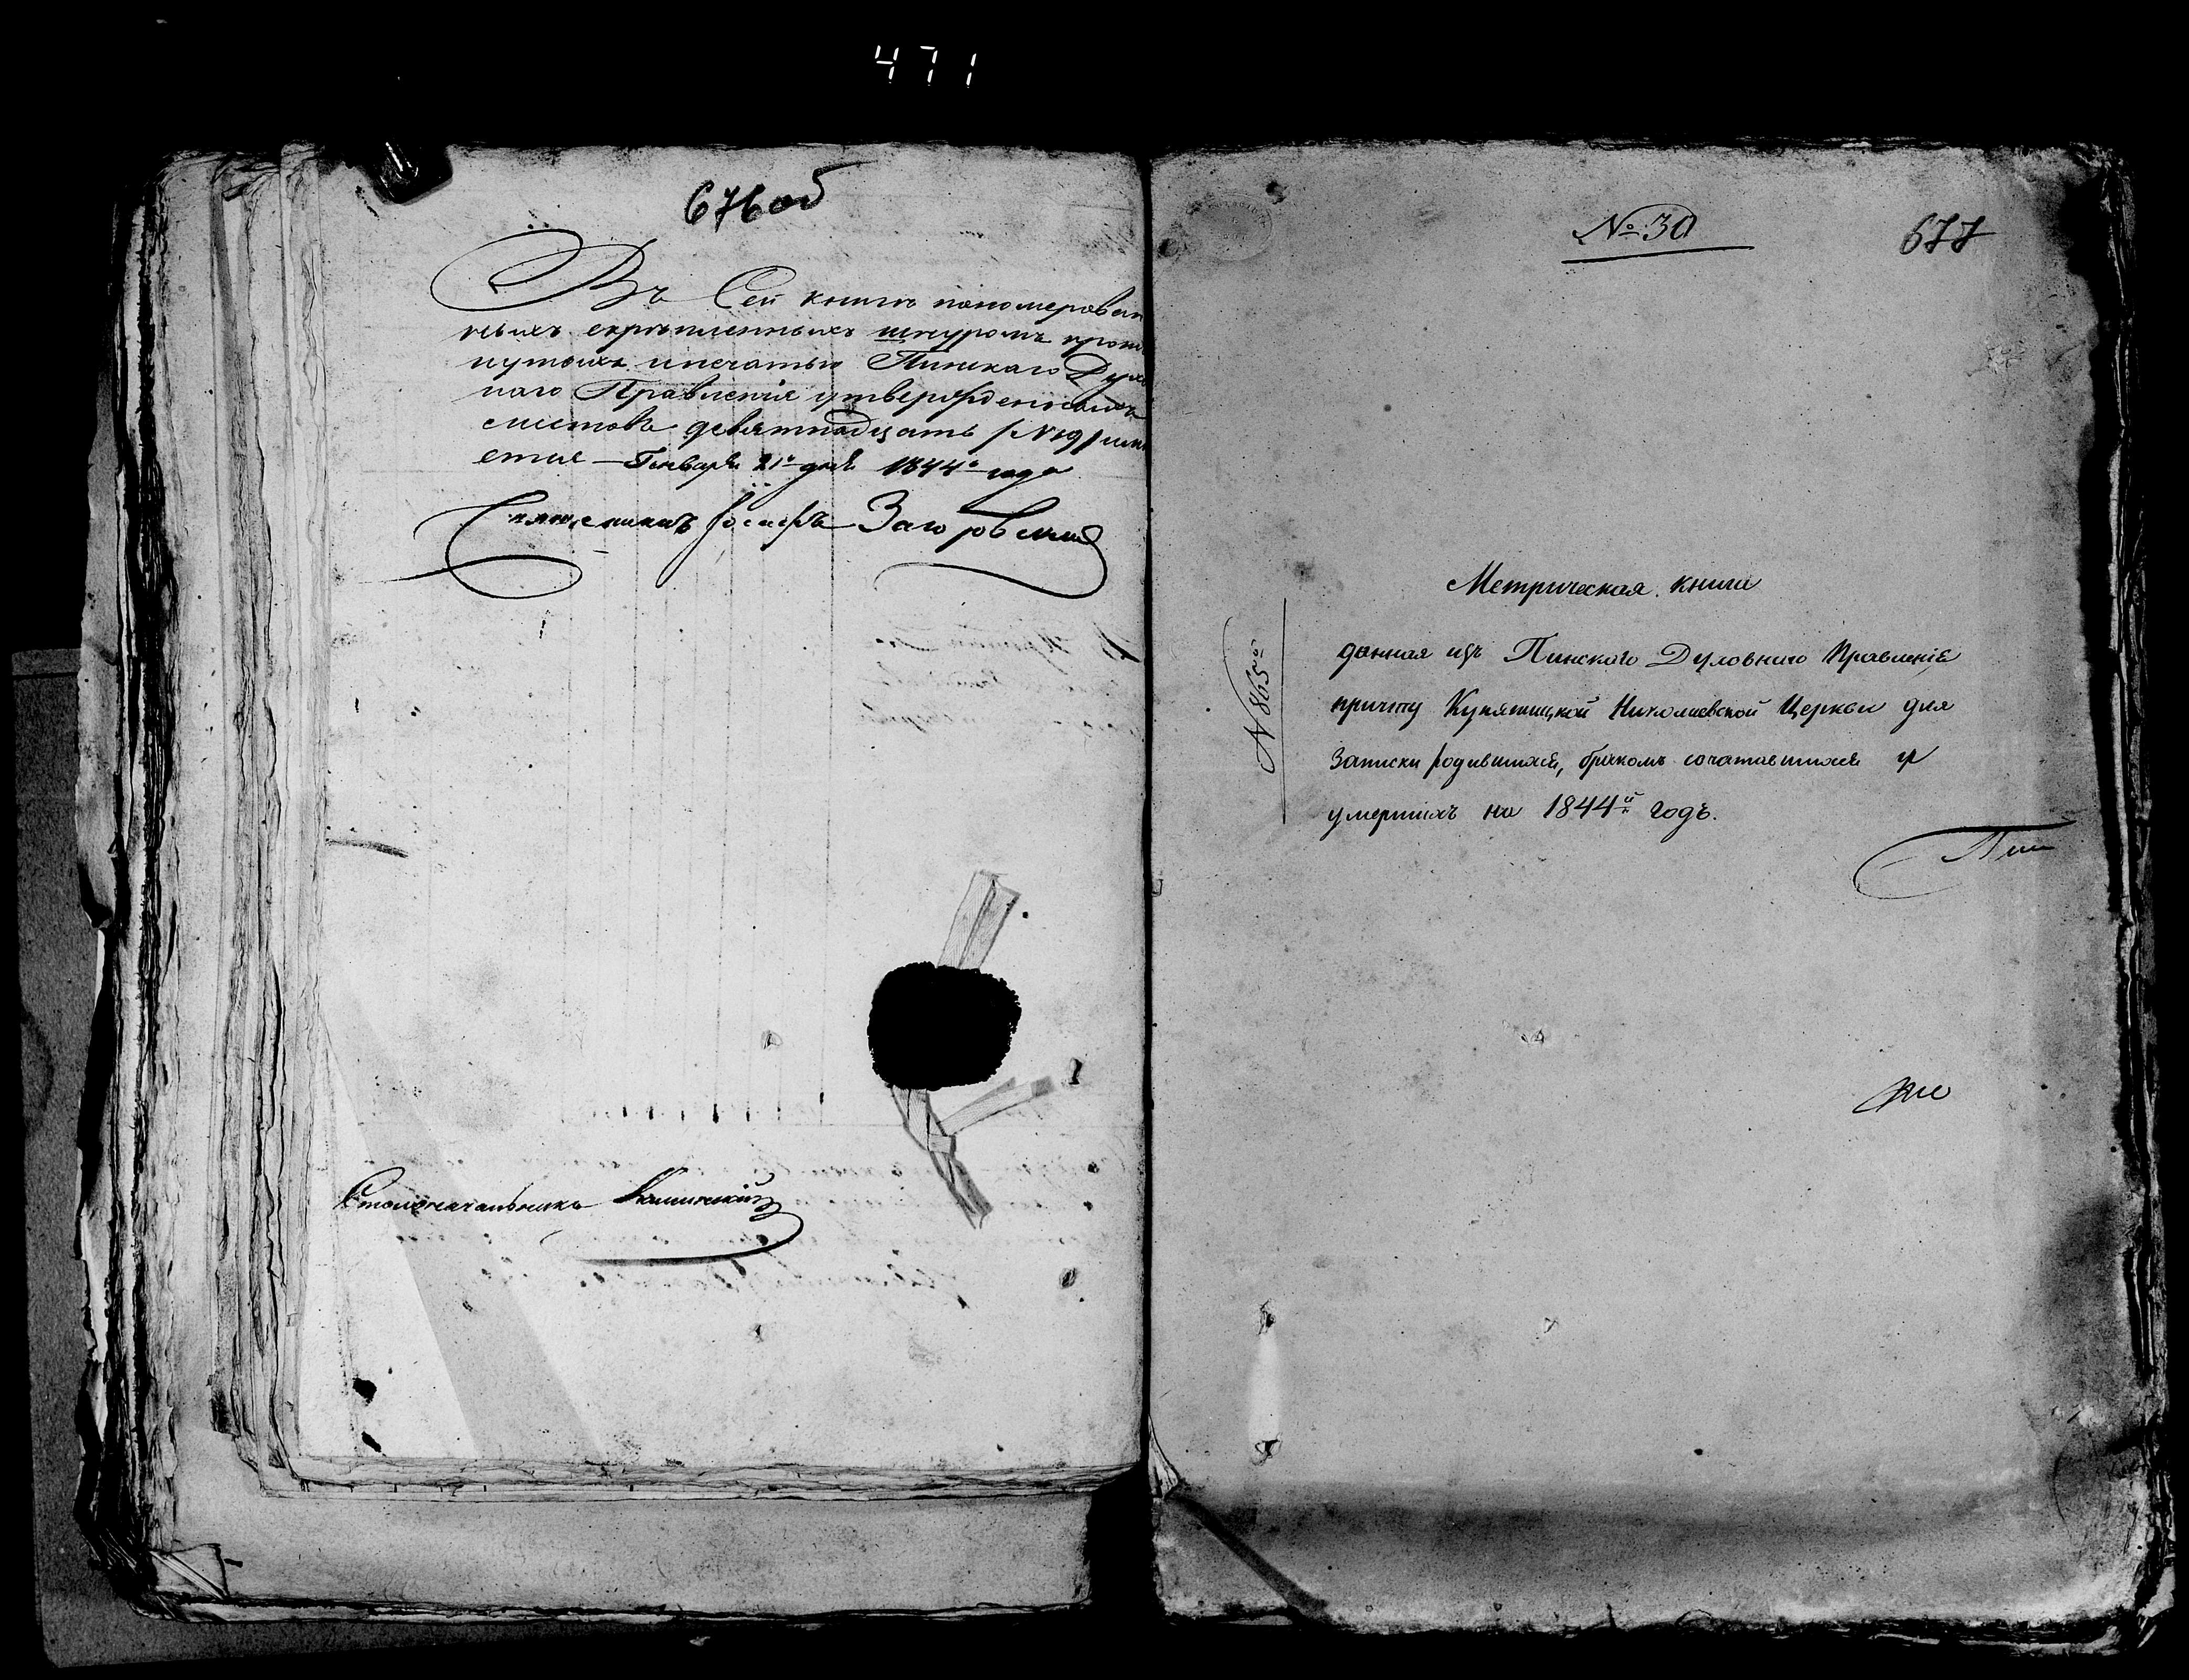 471
676об
Въ Сей книгѣ пономерован
ныхъ скрѣпленныхъ шнуромъ
нутыхъ и печатью Пинскаго Духо
наго Правленія утвержденныхъ
листовъ девятнадцать /№ 19/
Генваря 21 дня 1844 года
Священникъ Іосифъ Загоровскій
Столоначальникъ
№ 30
677
№ 865
Метрическая книга
данная изъ Пинскаго Духовнаго Правленія
причту Купятицкой Николаевской Церкви для
Записки родившихся, бракомъ сочетавшихся и
умершихъ на 1844й годъ.